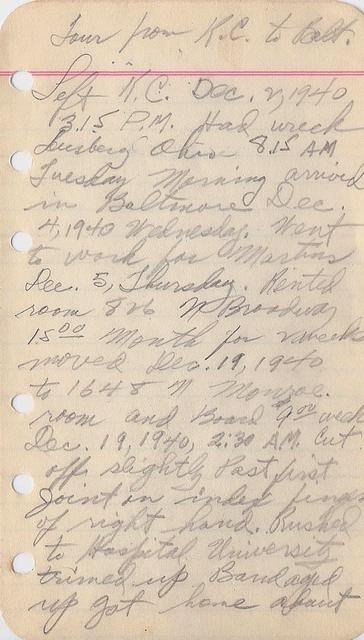 Tour from K.C. to Balt.
Left K.C. Dec. 2, 1940
3.15 P.M. Had wreck
Ohio 8.15 AM
Tuesday Morning arrived
in Baltimore Dec.
4, 1940 Wednesday. Went
to work for Martins
Dec. 5, Thursday. Rented
room 826 N Broadway
15.00 Month for 2 week
moved Dec. 19, 1940
to 1648 N Monroe.
room and Board 9.00 week
Dec. 19, 1940, 2:30 A.M. Cut
off slightly Past first
Joint on index finger
of right hand. Rushed
to Hospital University
trimed up Bandaged
up got home about